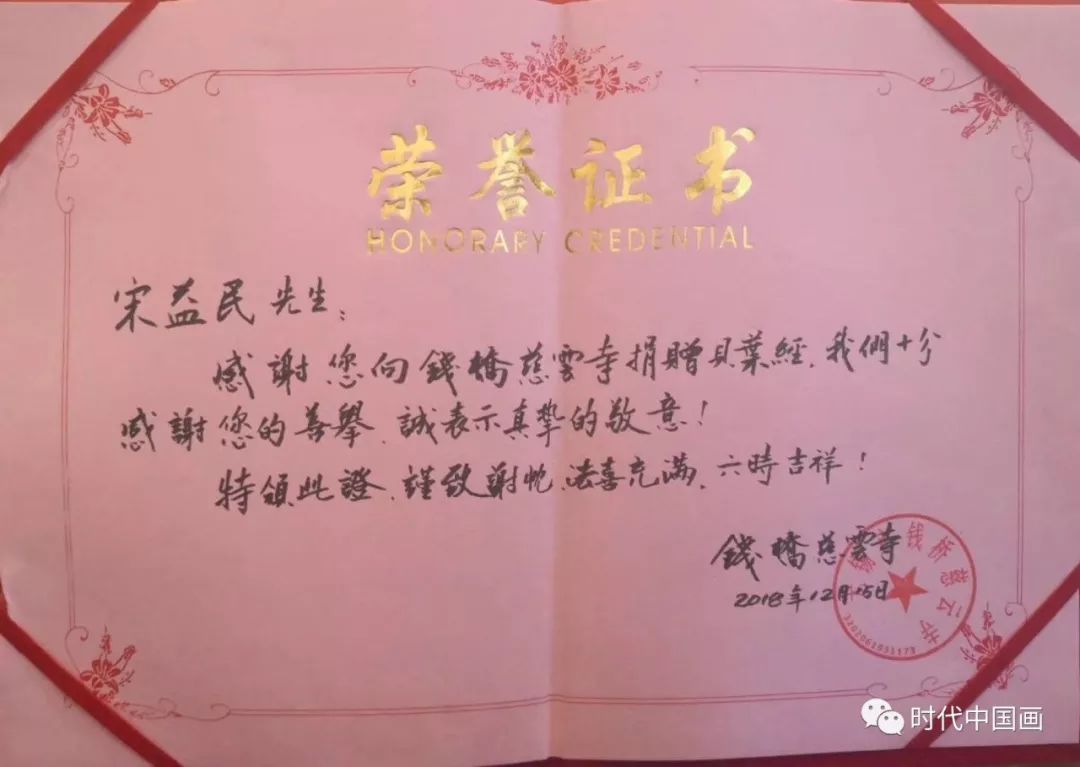 荣誉证书
HONORARY CREDENTIAL
宋益民先生：
感謝您向錢橋慈雲寺捐贈貝葉經，我們十分
感謝您的善舉，誠表示真摯的敬意！
特領此證，謹致謝忱，法喜充满，六時吉祥！
錢橋慈雲寺
2018年12月15日
钱桥慈云寺
时代中国画